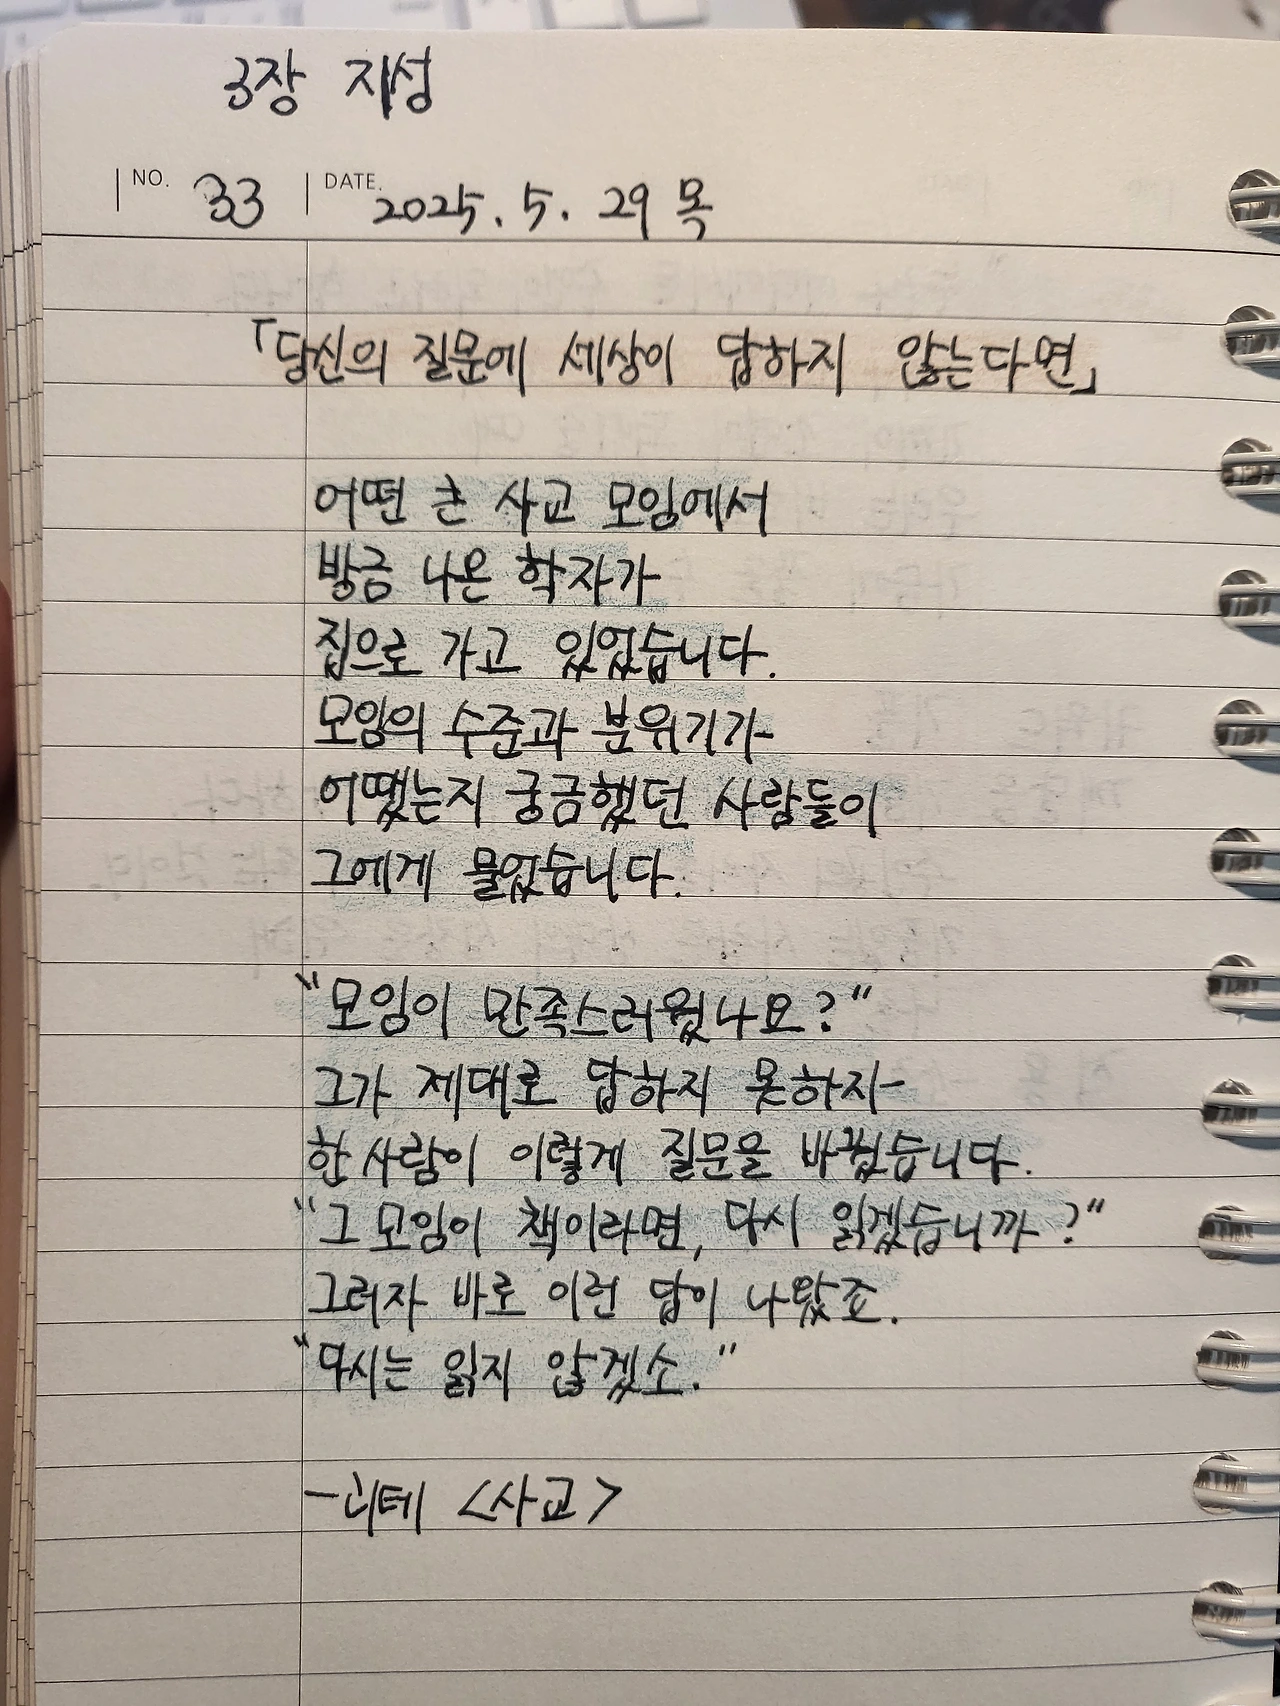 3장 지성
NO. 33 DATE. 2025. 5. 29 목
「당신의 질문에 세상이 답하지 않는다면」
어떤 큰 사교 모임에서
방금 나온 학자가
집으로 가고 있었습니다.
모임의 수준과 분위기가
어땠는지 궁금했던 사람들이
그에게 물었습니다.
"모임이 만족스러웠나요?"
그가 제대로 답하지 못하자
한 사람이 이렇게 질문을 바꿨습니다.
"그 모임이 책이라면, 다시 읽겠습니까?"
그러자 바로 이런 답이 나왔죠.
"다시는 읽지 않겠소."
-괴테 <사교>